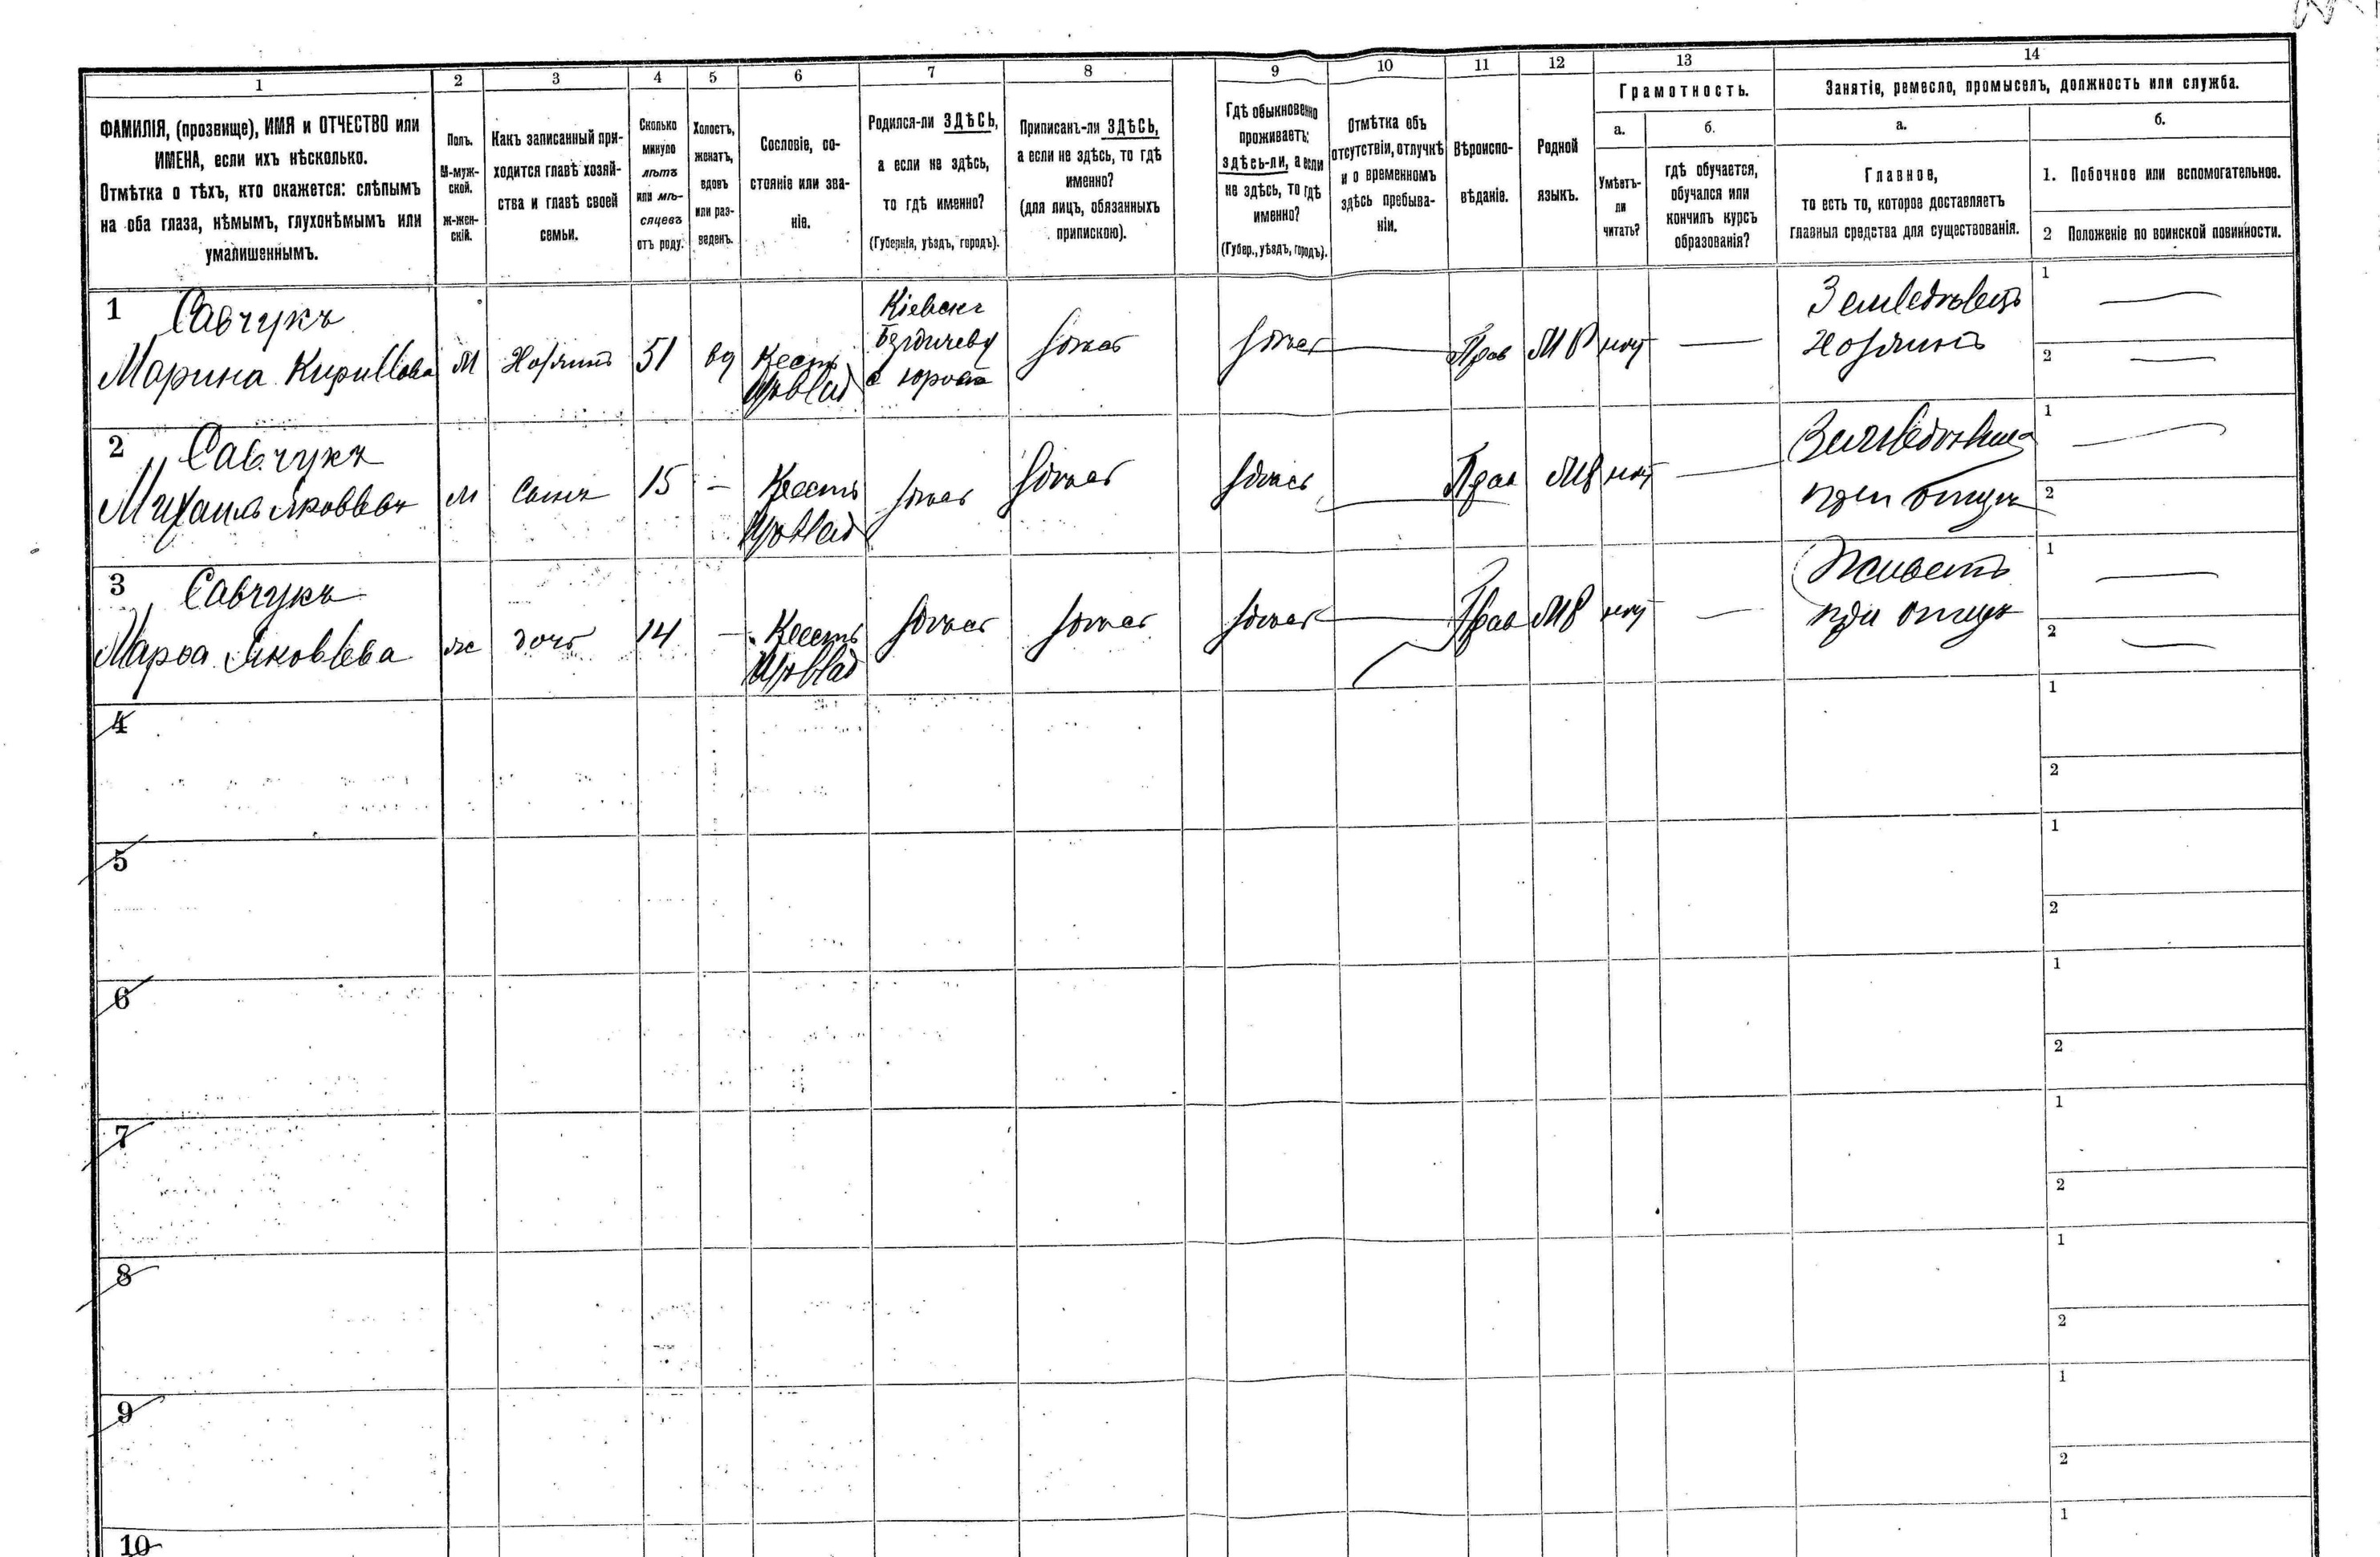 1
2
3
4
5
6
7
8
9
10
11
12
13
14
ФАМИЛІЯ, (прозвище), ИМЯ и ОТЧЕСТВО или
ИМЕНА, если ихъ нѣсколько.
Отмѣтка о тѣхъ, кто окажется: слѣпымъ
на оба глаза, нѣмымъ, глухонѣмымъ или
умалишеннымъ.
Полъ.
М-муж-
ской.
ж-жен-
скій.
Какъ записанный при-
ходится главѣ хозяй-
ства и главѣ своей
семьи.
Сколько
минуло
лѣтъ
или мѣ-
сяцевъ
отъ роду.
Холостъ,
женатъ,
вдовъ
или раз-
веденъ.
Сословіе, со-
стояніе или зва-
ніе.
Родился-ли ЗДѢСЬ,
а если не здѣсь,
то гдѣ именно?
(Губернія, уѣздъ, городъ).
Приписанъ-ли ЗДѢСЬ,
а если не здѣсь, то гдѣ
именно?
(для лицъ, обязанныхъ
припискою).
Гдѣ обыкновенно
проживаетъ:
здѣсь-ли, а если
не здѣсь, то гдѣ
именно?
(Губер., уѣздъ, городъ).
Отмѣтка объ
отсутствіи, отлучкѣ
и о временномъ
здѣсь пребыва-
ніи.
Вѣроиспо-
вѣданіе.
Родной
языкъ.
Грамотность.
а.
Умѣетъ-
ли
читать?
б.
гдѣ обучается,
обучался или
кончилъ курсъ
образованія?
Занятіе, ремесло, промыселъ, должность или служба.
а.
Главное,
то есть то, которое доставляетъ
главныя средства для существованія.
б.
1. Побочное или вспомогательное.
2 Положеніе по воинской повинности.
1 Савчукъ
Марина Кирилlова
М
Хозяинъ
51
вд
Крестъ
Кіевск
Бердичеву
здѣсь
здѣсь
Прав
МР
нѣт
Земледѣлецъ
Хозяинъ
1
2
2 Савчукъ
Михаилъ Яковlевъ
М
Сынъ
15
—
Крестъ
здѣсь
здѣсь
здѣсь
Прав
МР
нѣт
при отцѣ
1
2
3 Савчукъ
Марѳа Яковlева
ж
дочь
14
—
Крестъ
здѣсь
здѣсь
здѣсь
Прав
МР
нѣт
—
Живетъ
при отцѣ
1
2
4
1
2
5
1
2
6
1
2
7
1
2
8
1
2
9
1
2
10
1